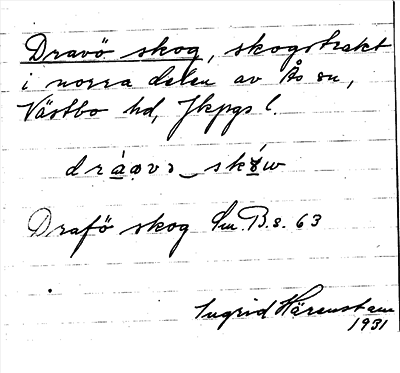 Dravö skog, skogstrakt
i norra delen av Ås sn,
Västbo hd, Jkpgs l.
dráavə‿skɤ́w
Drafö skog Sm B.s. 63
Ingrid Härenstam
1931